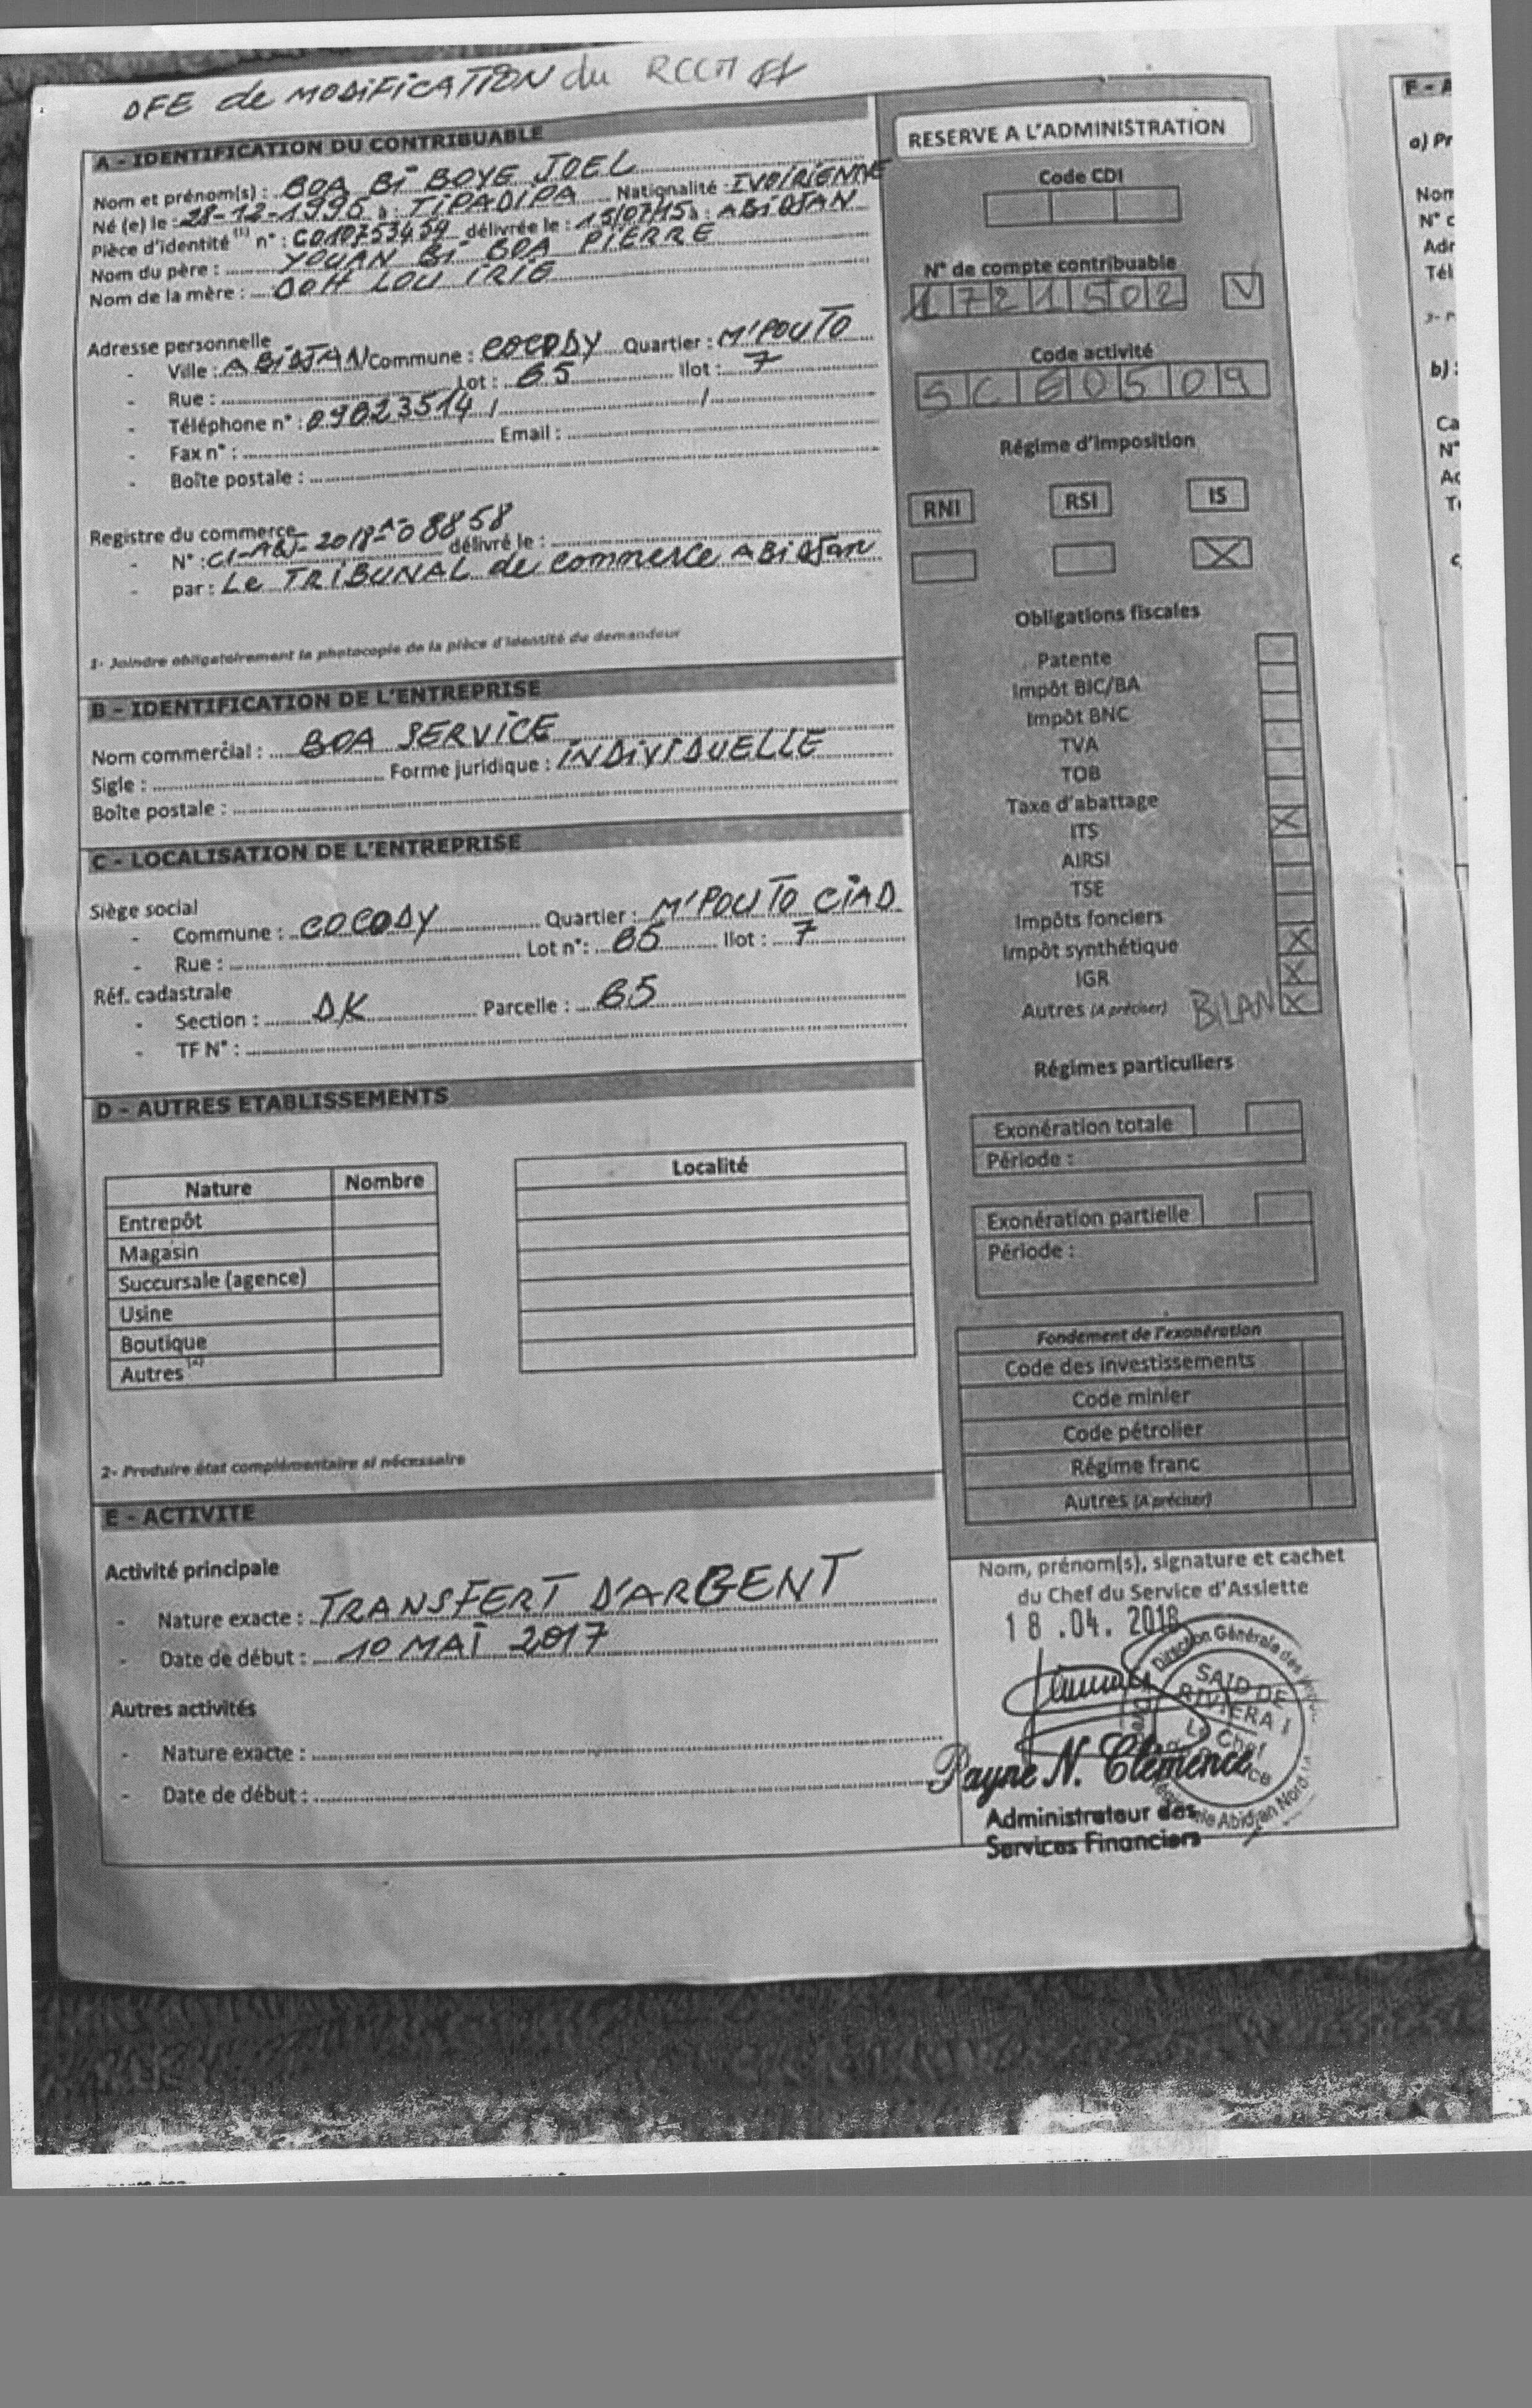 DFE de MODIFICATION du RCCM
A - IDENTIFICATION DU CONTRIBUABLE
Nom et prénom(s) : BOA Bi BOYE JOEL
Né (e) le : 28-12-1996 à : TIPADIPA Nationalité : IVOIRIENNE
Pièce d'identité (1) n° : C010753459 délivrée le : 15/07/15 à : ABIDJAN
Nom du père : YOUAN Bi BOA PIERRE
Nom de la mère : DOH LOU IRIE
Adresse personnelle
- Ville : ABIDJAN Commune : COCODY Quartier : M'POUTO
- Rue : Lot : 65 Ilot : 7
- Téléphone n° : 09023514 / /
- Fax n° : Email :
- Boîte postale :
Registre du commerce
- N° : CI-ABJ-2018-A-08858 délivré le :
- par : Le TRIBUNAL de commerce ABIDJAN
1- Joindre obligatoirement la photocopie de la pièce d'identité du demandeur
B - IDENTIFICATION DE L'ENTREPRISE
Nom commercial : BOA SERVICE
Sigle : Forme juridique : INDIVIDUELLE
Boîte postale :
C - LOCALISATION DE L'ENTREPRISE
Siège social
- Commune : COCODY Quartier : M'POUTO CIAD
- Rue : Lot n° : 65 Ilot : 7
Réf. cadastrale
- Section : DK Parcelle : 65
- TF N° :
D - AUTRES ETABLISSEMENTS
Nature Nombre Localité
Entrepôt
Magasin
Succursale (agence)
Usine
Boutique
Autres (2)
2- Produire état complémentaire si nécessaire
E - ACTIVITE
Activité principale
- Nature exacte : TRANSFERT D'ARGENT
- Date de début : 10 MAI 2017
Autres activités
- Nature exacte :
- Date de début :
RESERVE A L'ADMINISTRATION
Code CDI
N° de compte contribuable
1721502 V
Code activité
SCE0509
Régime d'imposition
RNI RSI IS
X
Obligations fiscales
Patente
Impôt BIC/BA
Impôt BNC
TVA
TOB
Taxe d'abattage
ITS X
AIRSI
TSE
Impôts fonciers
Impôt synthétique X
IGR X
Autres (A préciser) BILAN X
Régimes particuliers
Exonération totale
Période :
Exonération partielle
Période :
Fondement de l'exonération
Code des investissements
Code minier
Code pétrolier
Régime franc
Autres (A préciser)
Nom, prénom(s), signature et cachet
du Chef du Service d'Assiette
18 .04. 2018
Direction Générale des
SAID DE
RIVIERA I
Le Chef
Abidjan Nord
Payne N. Clémence
Administrateur des
Services Financiers
F - A
a) Pr
Nom
N° c
Adr
Tél
b) :
Ca
N°
Ad
T